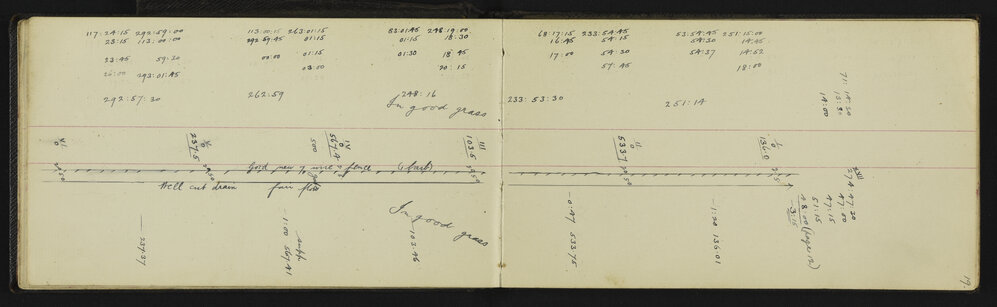 117:24:15 292:59:00
23:15 113:00:00
23:45 59:30
20:00 293:01:45
292:57:30
113:00:15 263:01:15
292:59:45 01:15
01:15
00:00
03:00
262:59
83:01:45 248:19:00
01:15 18:30
01:30 18:45
20:15
248:16
In good grass
68:17:15 233:54:45
16:45 54:15
17:00 54:30
57:45
233:53:30
53:54:45 251:15:00
54:30 14:45
54:37 14:52
18:00
251:14
14:00
VI
0
V
0
237.5
IV
0
567.4
500
III
103.5
II
533.7
I
0
136.0
Good new 7 wire fence (1 barb)
Well cut drain
fair flow
In good grass
237.37
-1:00 567.41
103.46
-0:47 533.75
-1:20 136.01
XIII
274:47:30
47:00
47:15
51:15
48:00 (page 12)
-3:15
19.